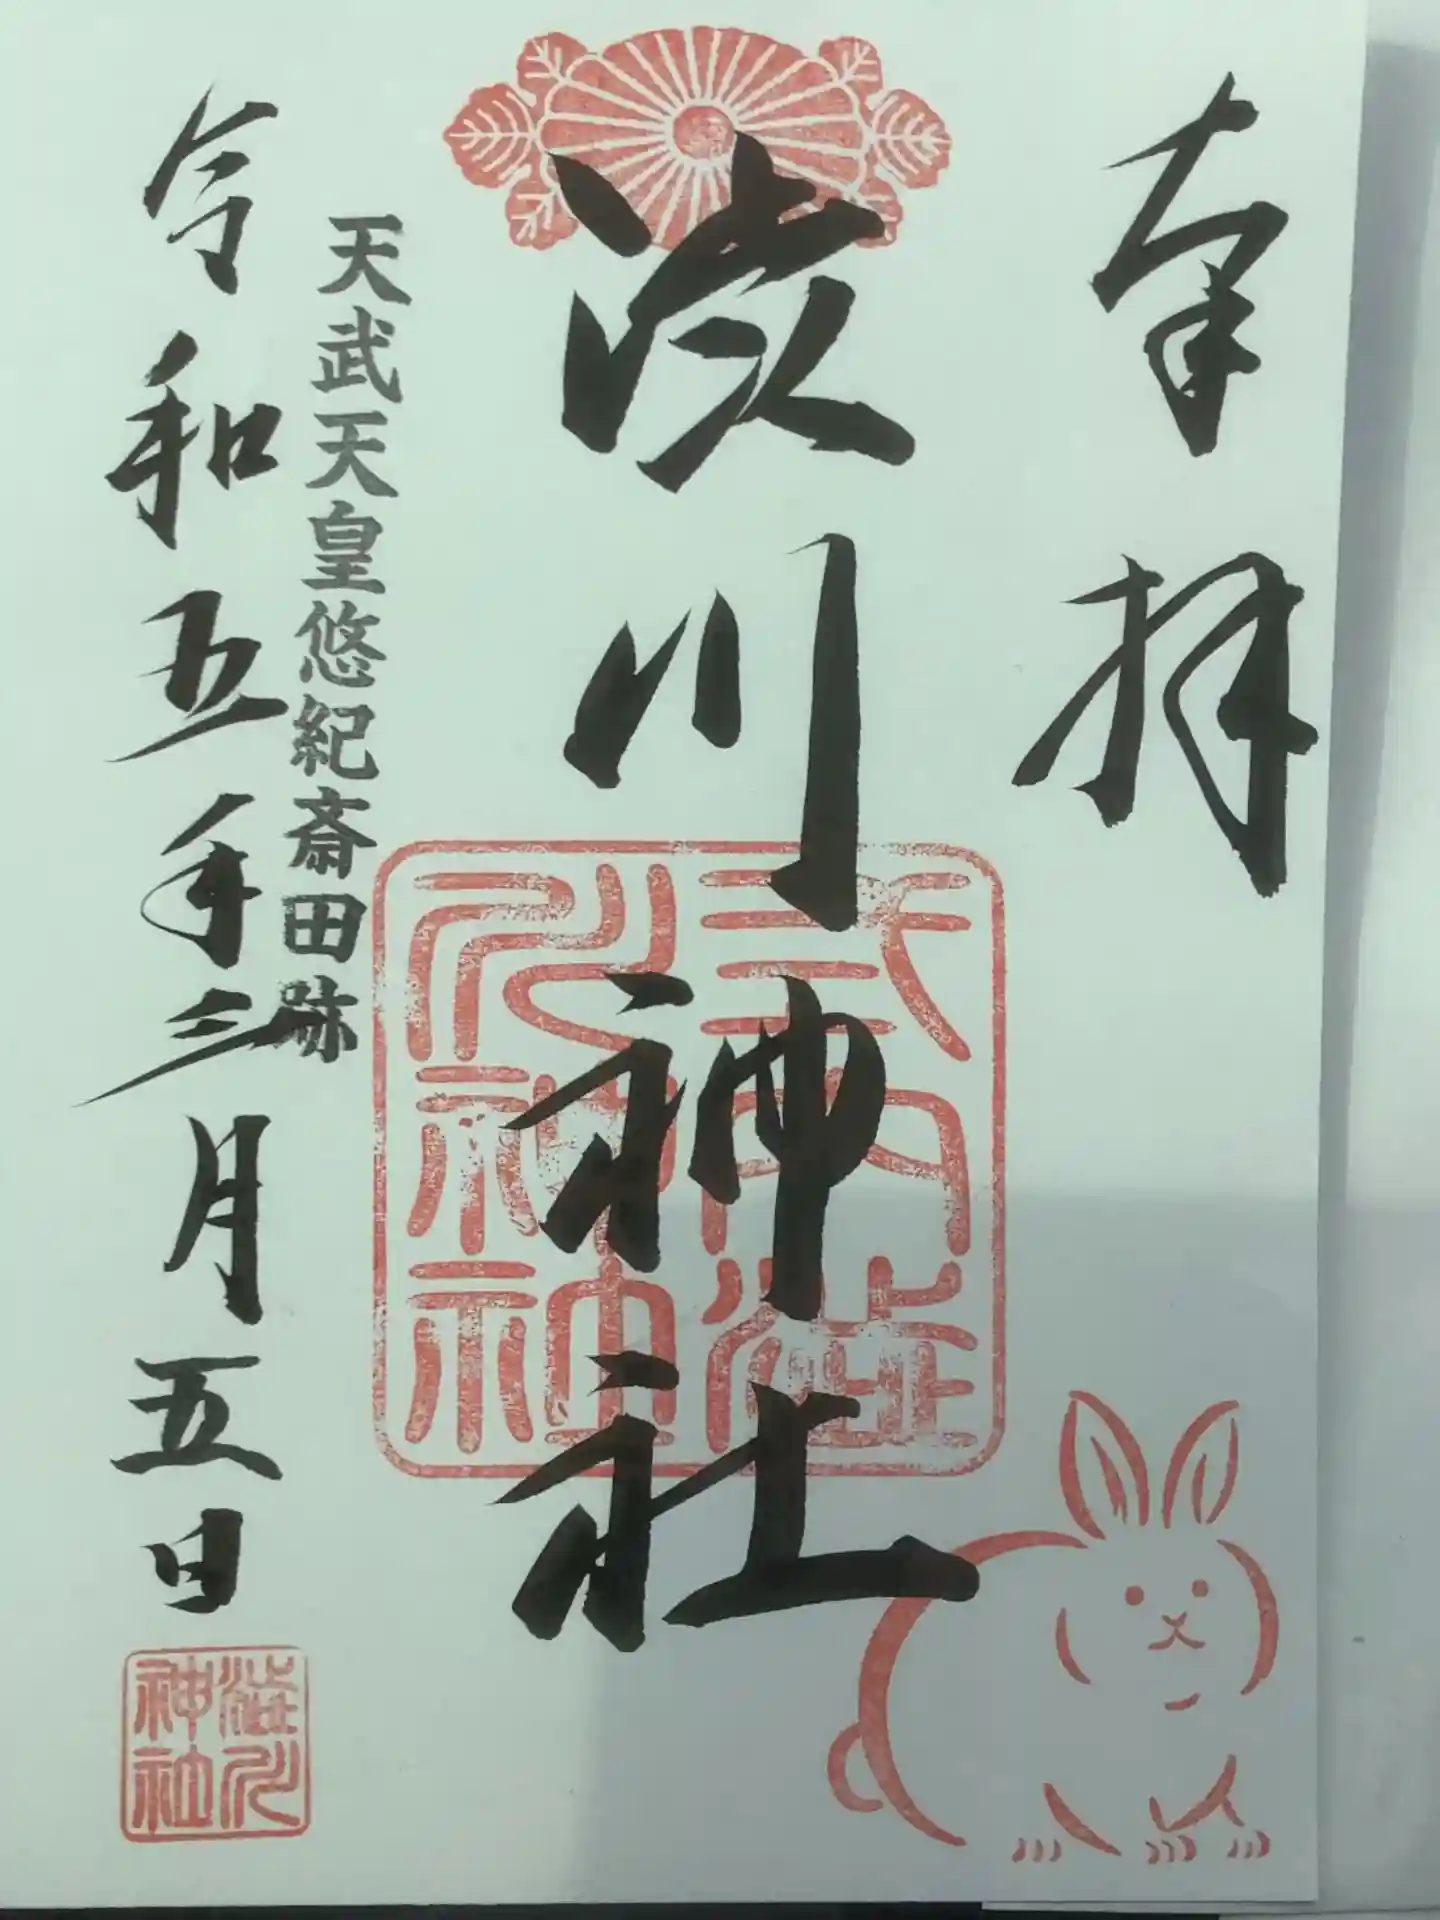 奉拝
渋川神社
天武天皇悠紀斎田跡
令和五年三月五日
式内澁川神社
澁川神社